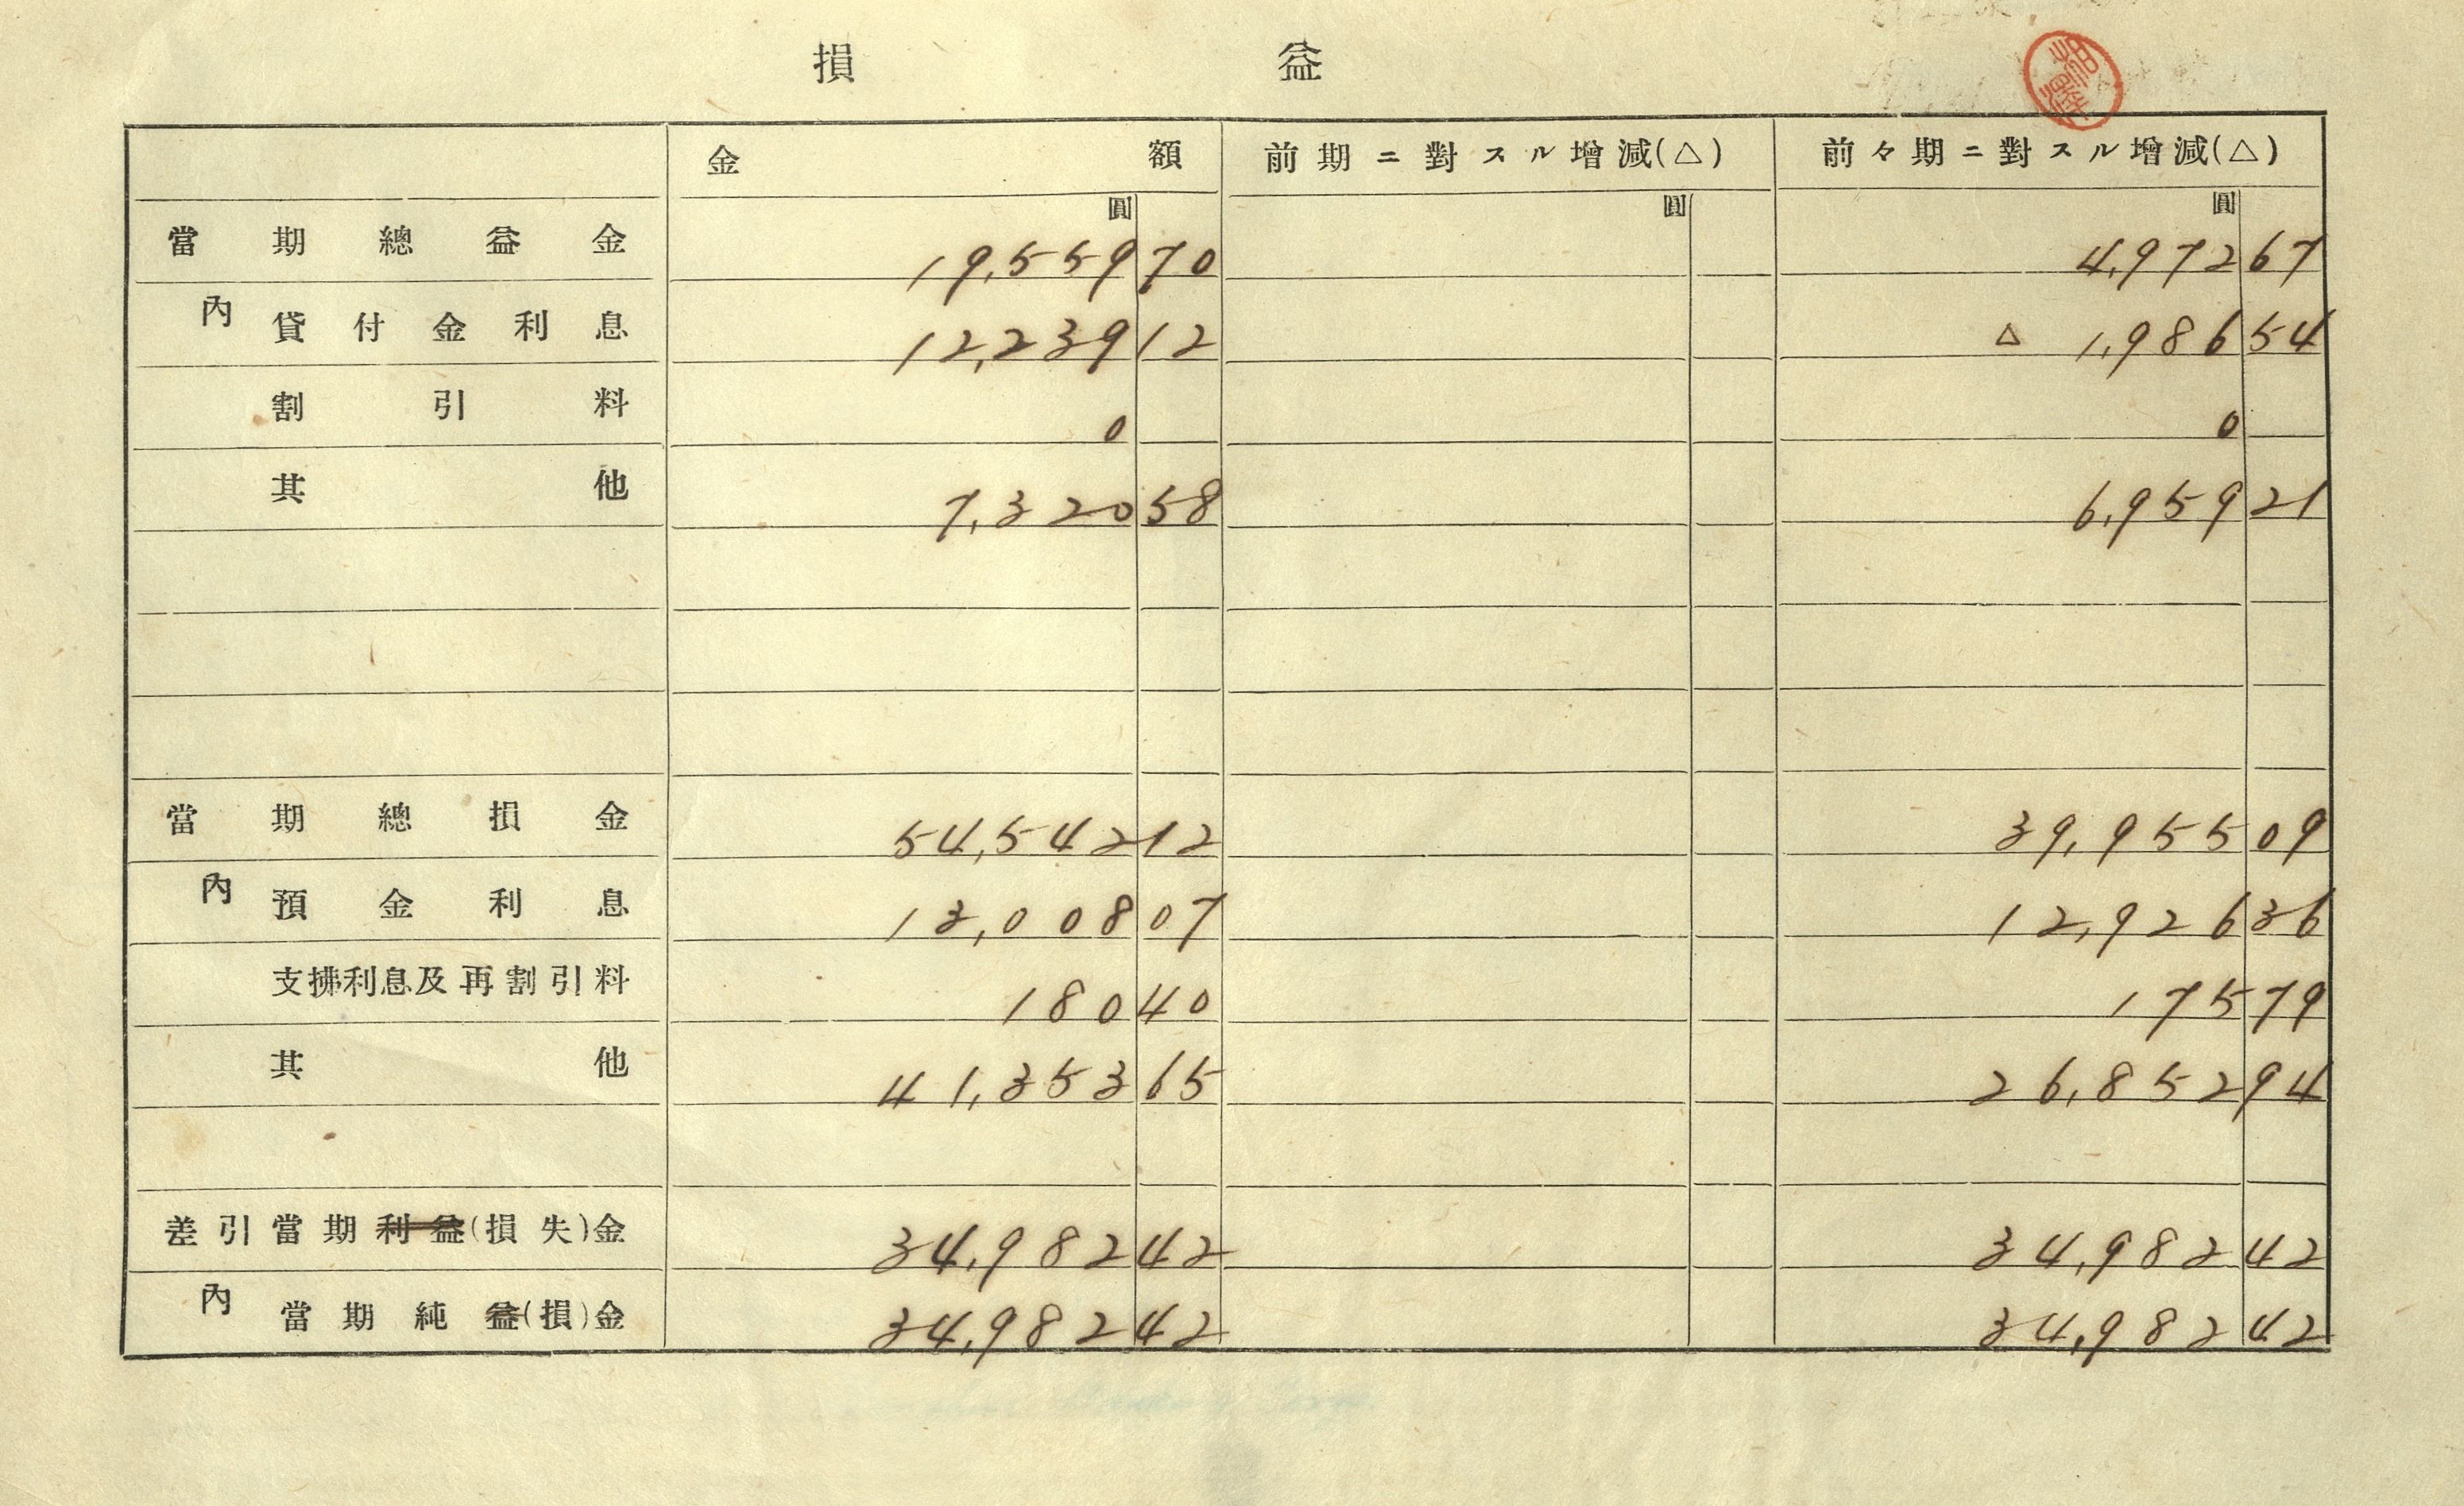 損 益
金 額 前期ニ對スル增減(△) 前々期ニ對スル增減(△)
圓 圓 圓
當期總益金 19,559 70 4,972 67
內 貸付金利息 12,239 12 △ 1,986 54
割引料 0 0
其他 7,320 58 6,959 21
當期總損金 54,542 12 39,955 09
內 預金利息 13,008 07 12,926 36
支拂利息及再割引料 180 40 175 79
其他 41,353 65 26,852 94
差引當期利益(損失)金 34,982 42 34,982 42
內 當期純益(損)金 34,982 42 34,982 42